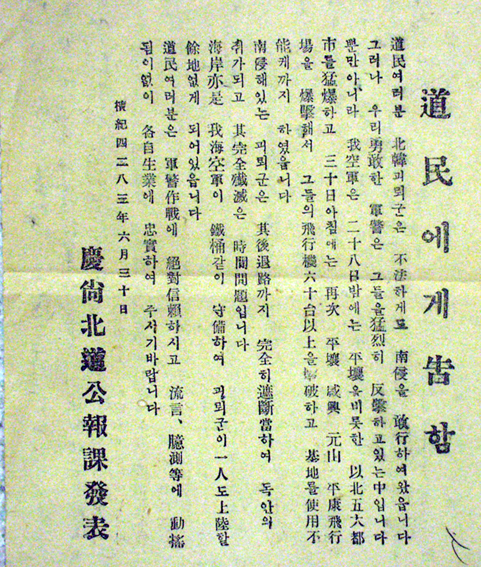 道民에게告함
道民여러분 北韓괴뢰군은 不法하게도 南侵을 敢行하여왔읍니다
그러나 우리勇敢한 軍警은 그들을猛烈히 反擊하고있는中입니다
뿐만아니라 我空軍은 二十八日밤에는 平壤을비롯한 以北五大都
市를猛爆하고 三十日아침에는 再次 平壤 咸興 元山 平康飛行
場을 爆擊해서 그들의飛行機六十台以上을 擊破하고 基地를使用不
能케까지 하였읍니다
南侵해있는 괴뢰군은 其後退路까지 完全히遮斷當하여 독안의
쥐가되고 其完全殲滅은 時間問題입니다
海岸亦是 我海空軍이 鐵桶같이 守備하여 괴뢰군이一人도上陸할
餘地없게 되어있읍니다
道民여러분은 軍警作戰에 絕對信賴하시고 流言、臆測等에 動搖
됨이없이 各自生業에 忠實하여 주시기바랍니다
檀紀四二八三年六月三十日
慶尙北道公報課發表